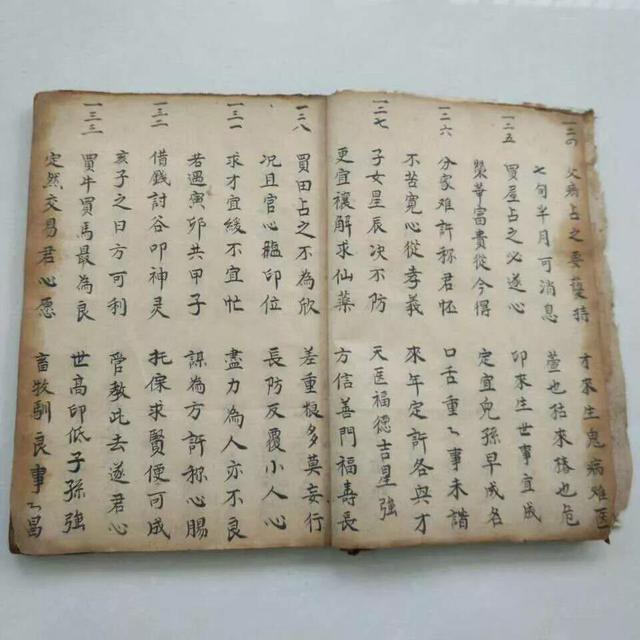 一二四 父病占之要蔓持 才來生鬼病难医
七旬半月可消息 萱也枯來椿也危
一二五 買屋占之必遂心 印來生世事宜成
榮華富貴從今得 定宜兒孫早成名
一二六 分家难許称君怀 口舌重々事未諧
不苦寬心從孝義 來年定許各與才
一二七 子女星辰决不防 天医福德吉星強
更宜禳解求仙藥 方信善門福壽長
一二八 買田占之不為欣 差重粮多莫妄行
况且官心臨印位 長防反覆小人心
一三一 求才宜緩不宜忙 盡力為人亦不良
若遇寅卯共甲子 謀為方許称心賜
一三二 借錢討谷叩神灵 托保求賢便可成
亥子之日方可利 管教此去遂君心
一三三 買牛買馬最為良 世高印低子孫強
定然交易君心愿 畜牧馴良事々昌